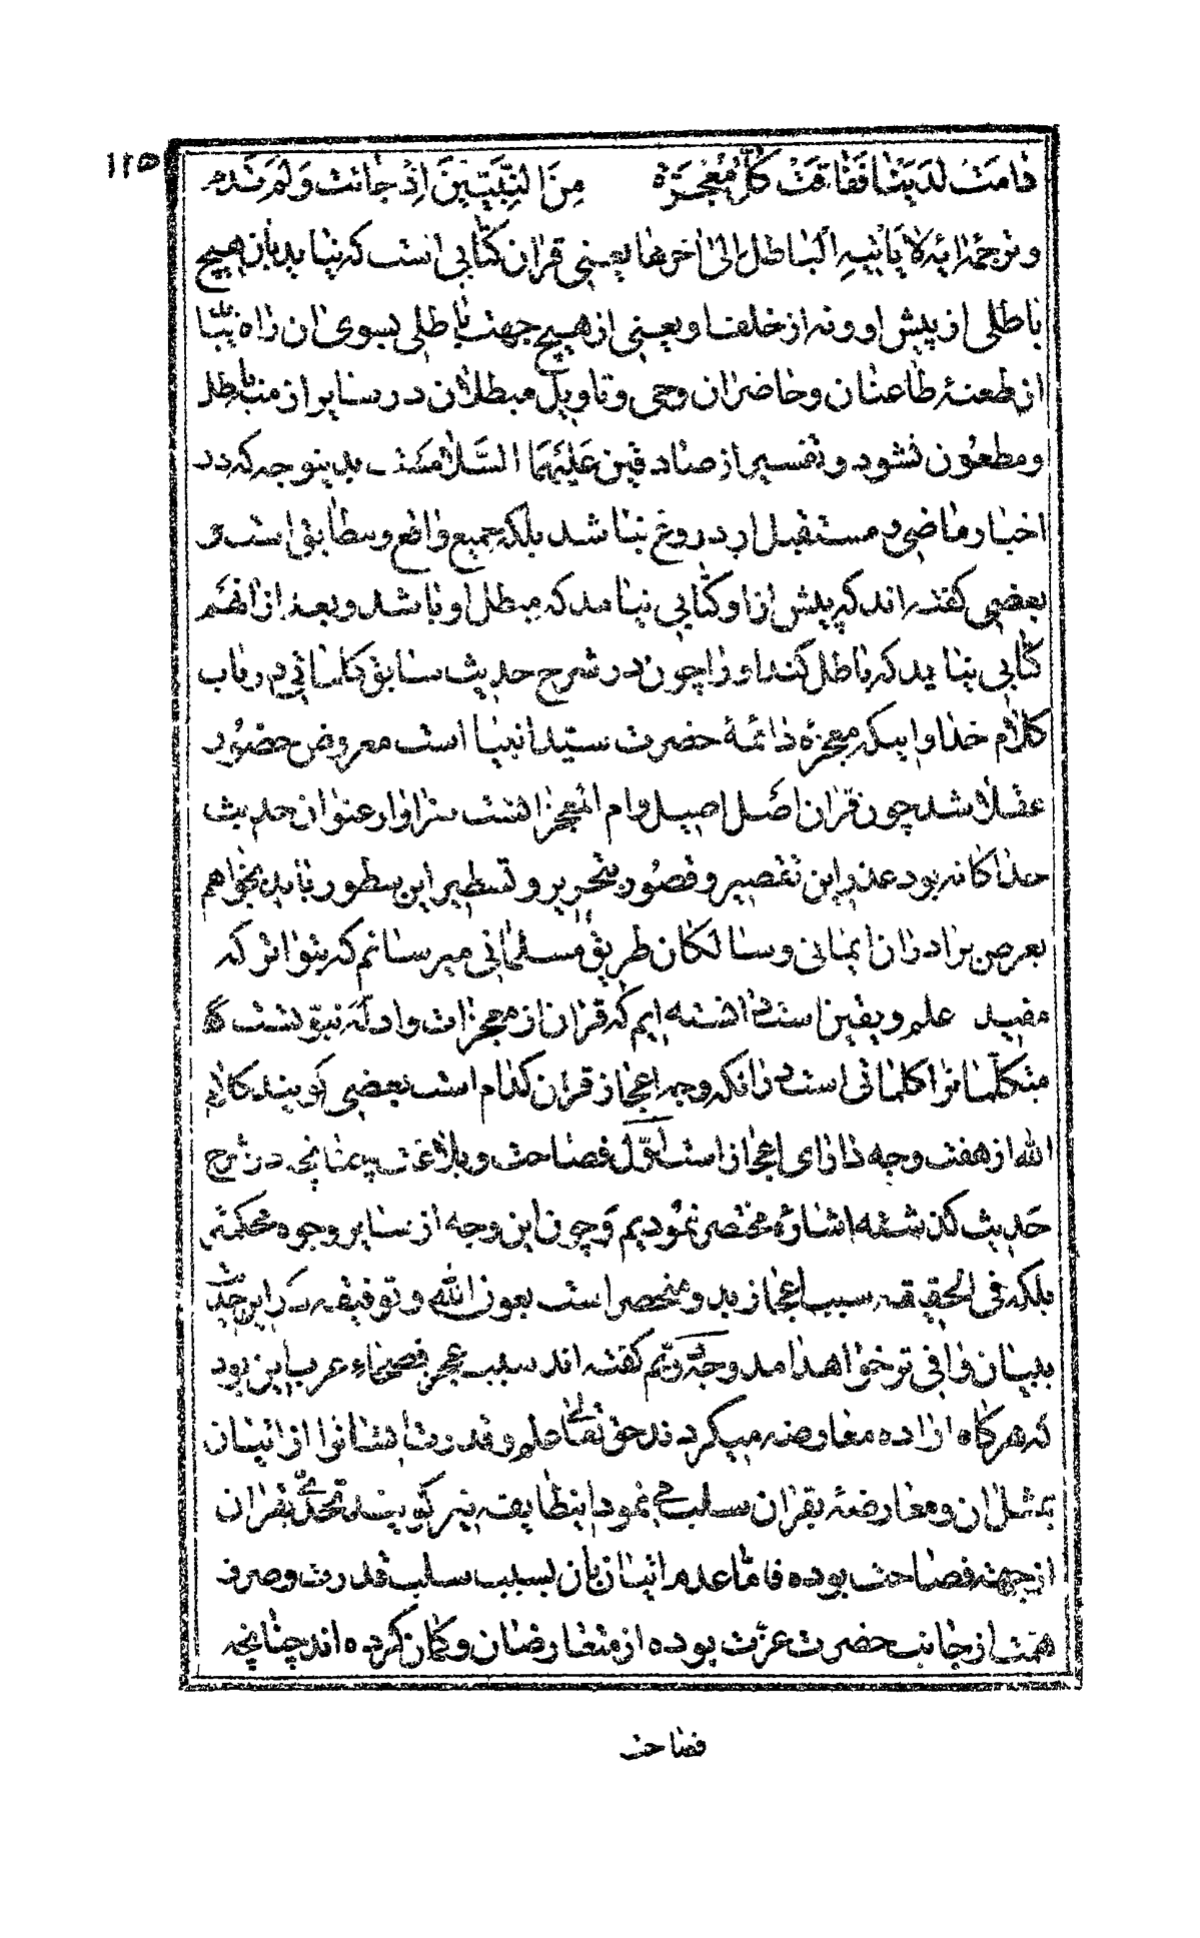 ۱۱۵
دامَتْ لَدَیْنٰا فَفٰاقَتْ کُلَّ مُعْجِزَةٍ مِنَ النَّبِیّٖینَ اِذْ جٰائَتْ وَلَمْ تَدُمِ
و ترجمهٔ ایهٔ لا یَأتیهِ الباطل الی اخرها یعنی قران کتابی است که نیاید بان هیچ
باطلی از پیش او و نه از خلف او یعنی از هیچ جهت باطلی بسوی ان راه نیابد
از طعنهٔ طاعنان و حاضران وحی و تاویل مبطلان در سایر ازمنه باطل
و مطعون نشود و تفسیر از صادقین عَلَیْهِمَا السَّلام است بدینوجه که در
اخبار ماضی و مستقبل ان دروغ نباشد بلکه جمیع واقع و مطابق است و
بعضی کفته اند که پیش از او کتابی نیامد که مبطل او باشد و بعد از ان هم
کتابی نیاید که باطل کند او را چون در شرح حدیث سابق کلماتی در باب
کلام خدا و اینکه معجزهٔ دائمهٔ حضرت سید انبیا است معروض حضور
عقلا شد چون قران اصل اصیل و ام المعجز است سزاوار عنوان حدیث
جداکانه بود عذر این تقصیر و قصور تحریر و تسطیر این سطور باید بخواهم
بعرض برادران ایمانی و سالکان طریق مسلمانی میرسانم که بتواتر که
مفید علم و یقین است دانسته ایم که قران از معجزات و ادلّهٔ نبوّتست
متکلّمانرا کلماتی است در انکه وجه اعجاز قران کدام است بعضی کویند کلام
الله از هفت وجه دارای اعجاز است اوّل فصاحت و بلاغت چنانچه در شرح
حدیث کذشته اشارهٔ مختصر نمودیم و چون این وجه از سایر وجوه محکمتر
بلکه فی الحقیقه سبب اعجاز بدو منحصر است بعون الله و توفیقه در این حدیث
ببیان وافی تر خواهد امد وجه دویّم کفته اند سبب عجز فصحاء عرب این بود
که هر کاه اراده معارضه میکردند حق تعالی علم و قدرت ایشانرا از اتیان
بمثل ان و معارضهٔ بقران سلب می نمود اینطایفه نیز کویند تحدّی بقران
از جهة فصاحت بوده فامّا عدم اتیان بان بسبب سلب قدرت و صرف
همت از جانب حضرت عزّت بوده از متعارضان و کمان کرده اند چنانچه
فصاحت